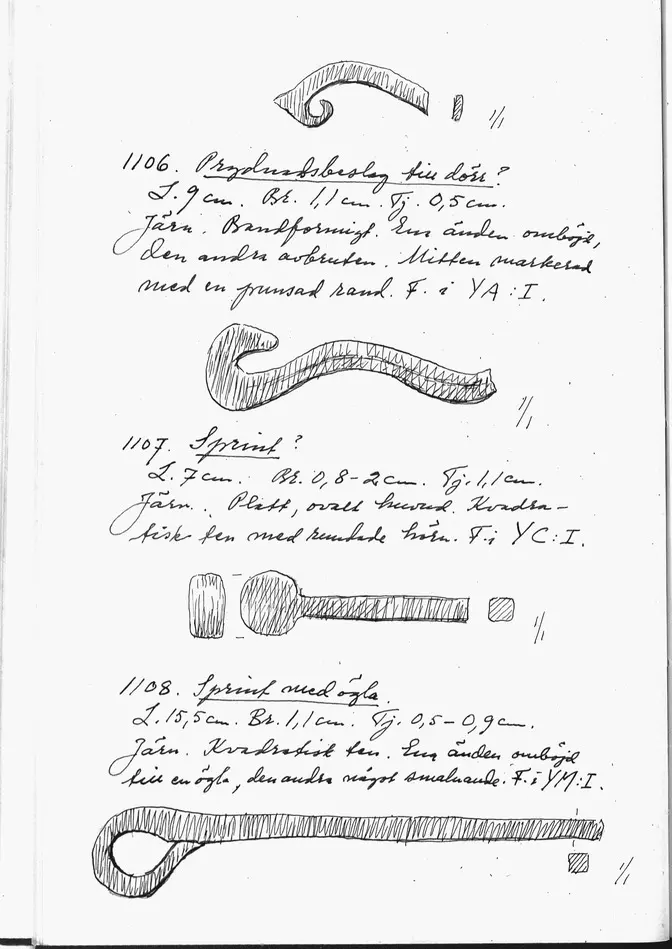 1/1
1106. Prydnadsbeslag till dörr?
L. 9 cm. Br. 1,1 cm. Tj. 0,5 cm.
Järn. Bandformigt. Ena änden omböjd,
den andra avbruten. Mitten markerad
med en punsad rand. F. i YA:I.
1/1
1107. Sprint?
L. 7 cm. Br. 0,8-2 cm. Tj. 1,1 cm.
Järn. Platt, ovalt huvud. Kvadra-
tisk ten med rundade hörn. F. i YC:I.
1/1
1108. Sprint med ögla.
L. 15,5 cm. Br. 1,1 cm. Tj. 0,5-0,9 cm.
Järn. Kvadratisk ten. Ena änden omböjd
till en ögla, den andra något smalnande. F. i YM:I.
1/1